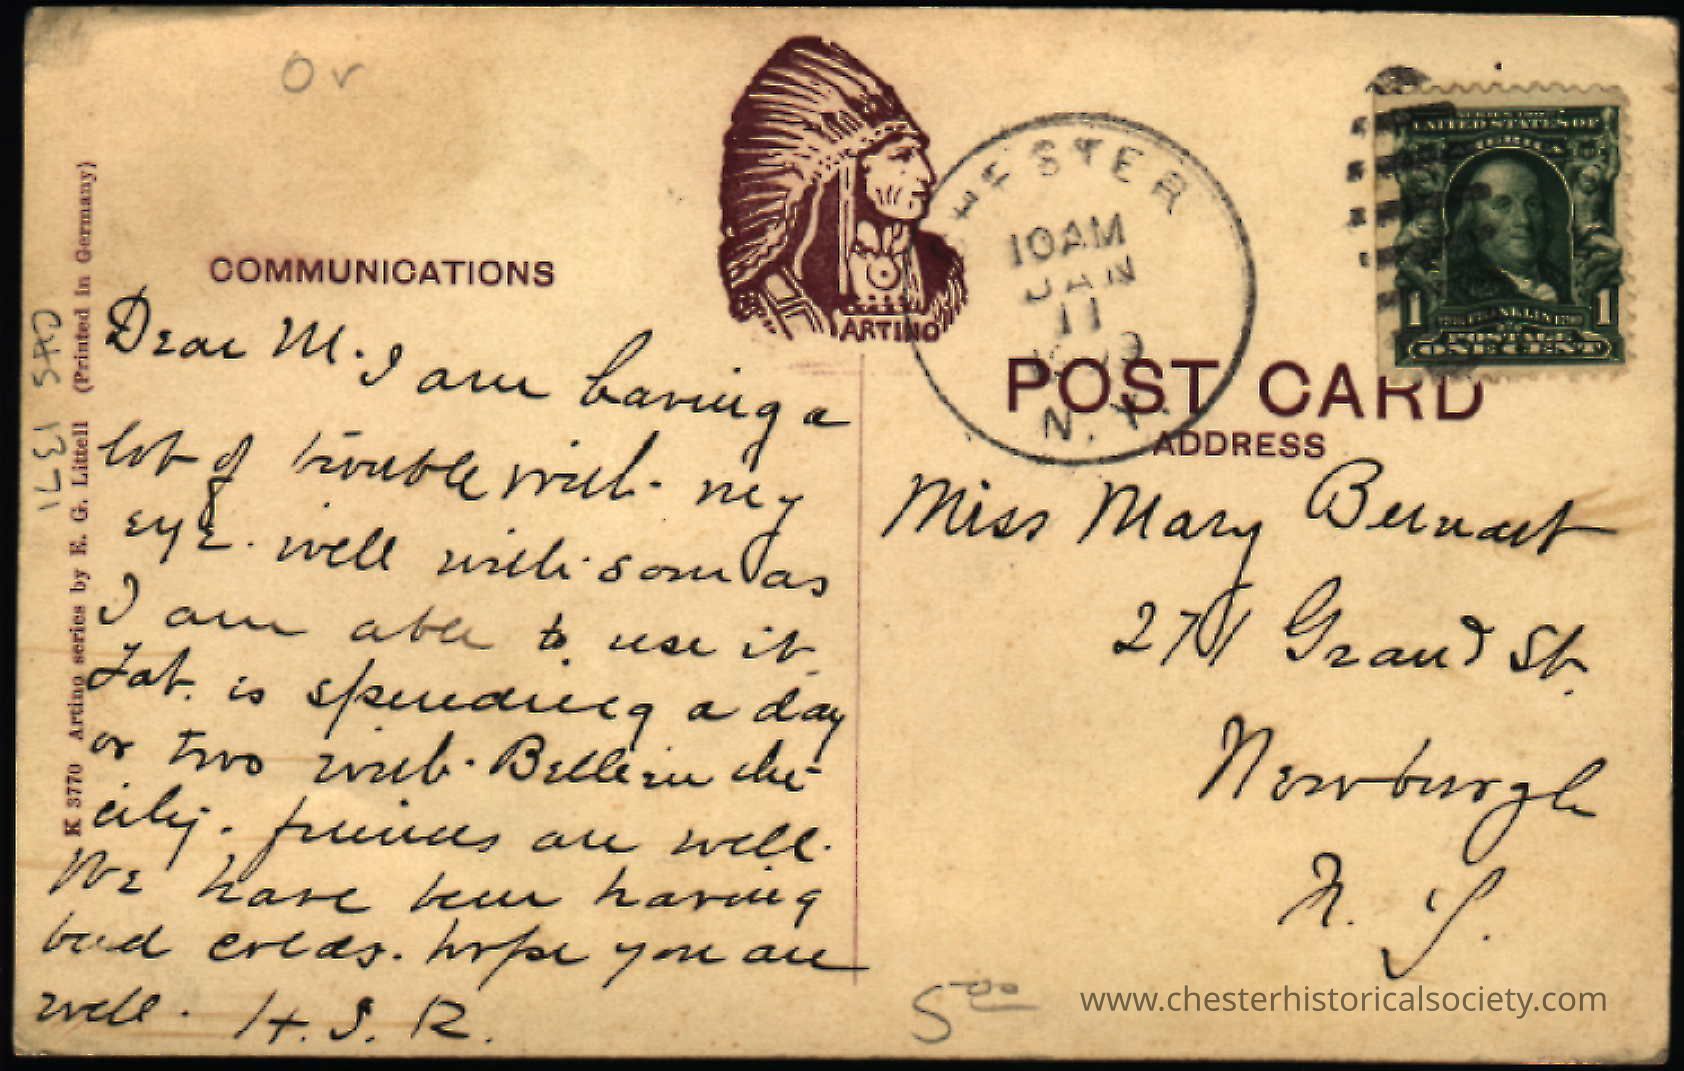 O r
COMMUNICATIONS
Dear M. I am having a
lot of trouble with my
eye. will write soon as
I am able to use it.
is spending a day
or two with Belle in the
city. friends are well.
We have been having
bad colds. hope you are
well. H. S. R.
K 3770 Artino series by E. G. Littell (Printed in Germany)
ARTINO
CHESTER
10 AM
JAN
11
N. Y.
SERIES 1902
UNITED STATES OF
AMERICA
1 FRANKLIN 1
POSTAGE
ONE CENT
POST CARD
ADDRESS
Miss Mary
271 Grand St.
Newburgh
N. Y.
5 00
www.chesterhistoricalsociety.com